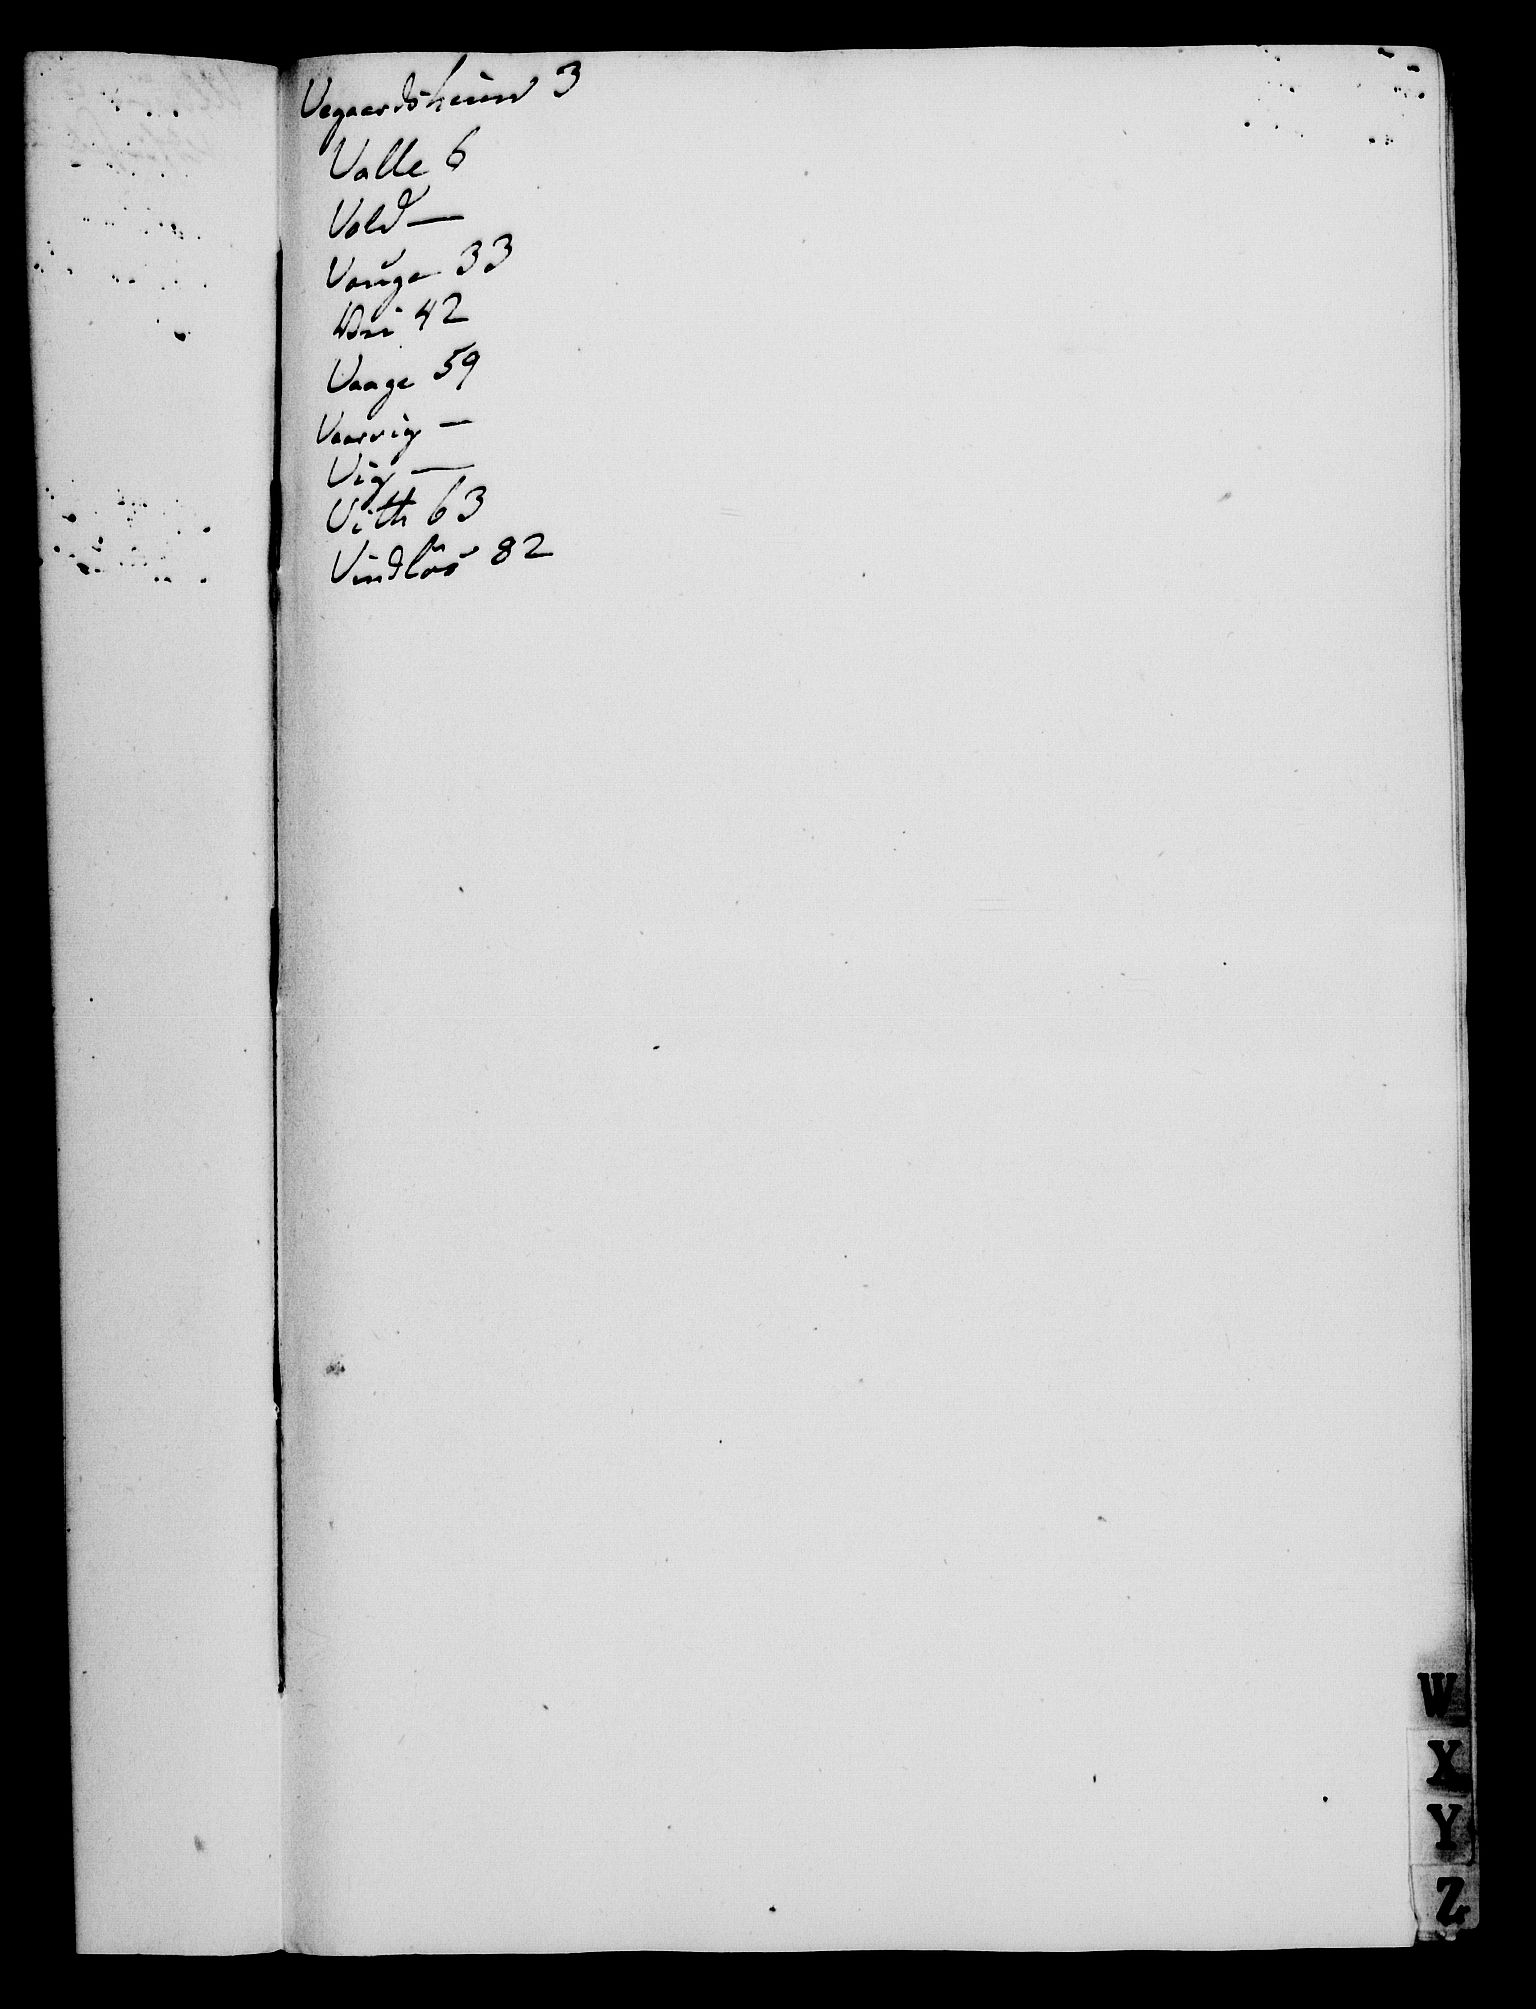 Vegaardsheien 3
Valle 6
Vold —
Vauge 33
42
Vaage 59
Vaarvig —
Vig —
Vith 63
Vindlås 82
W
X
Y
Z